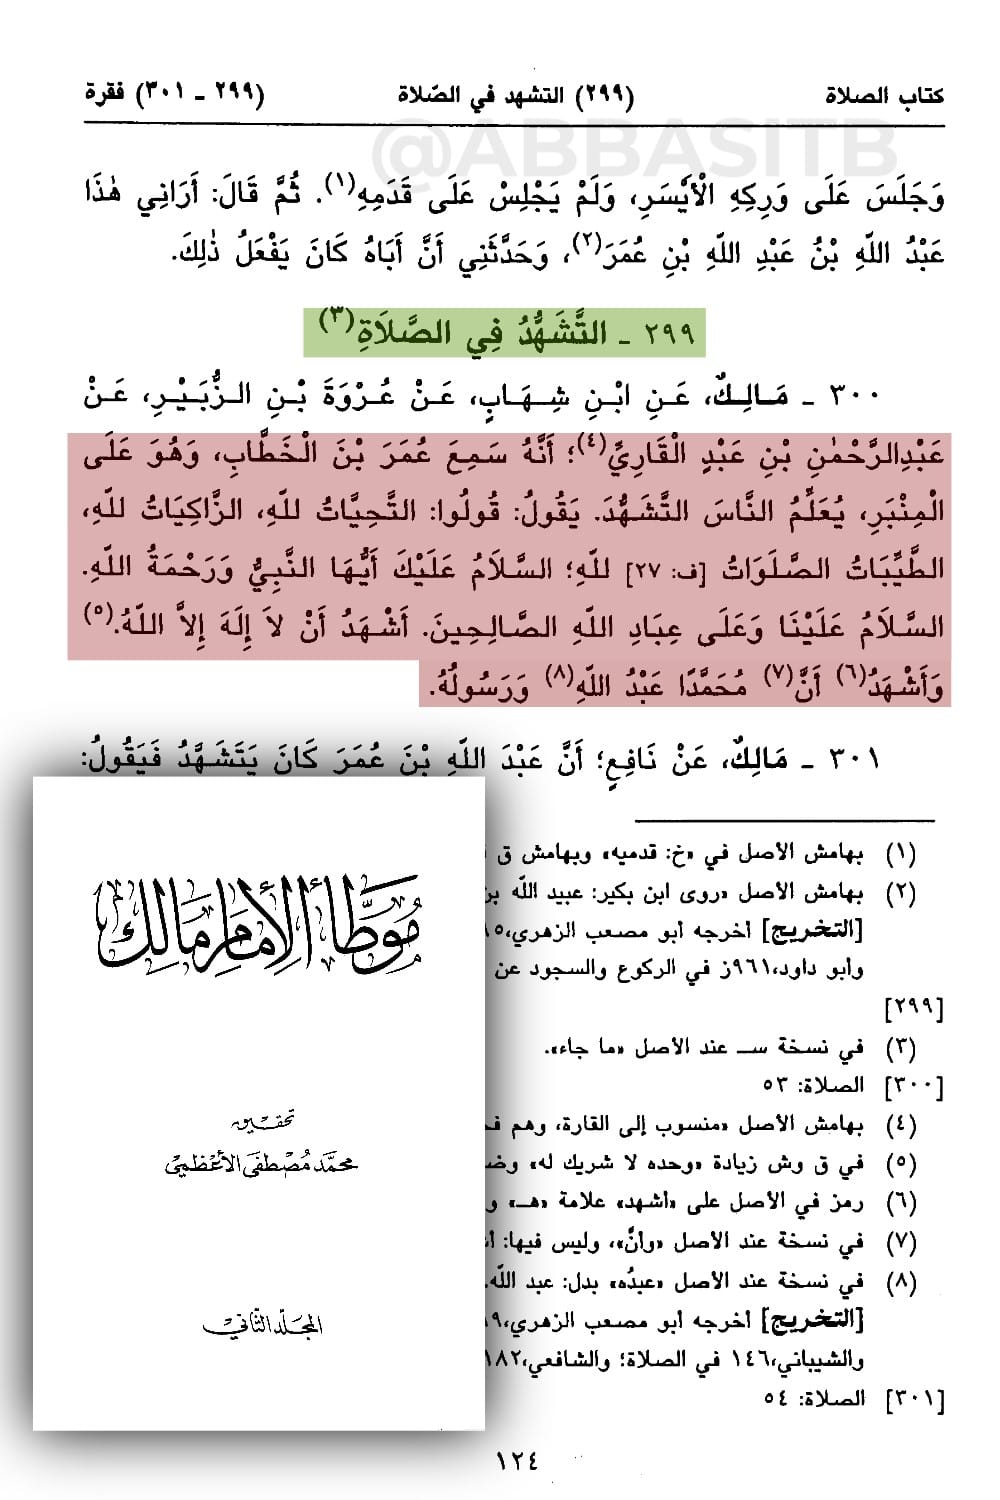 كتاب الصلاة (٢٩٩) التشهد في الصّلاة (٢٩٩ ـ ٣٠١) فقرة
@ABBASITB
وَجَلَسَ عَلَى وَرِكِهِ الْأَيْسَرِ، وَلَمْ يَجْلِسْ عَلَى قَدَمِهِ(١). ثُمَّ قَالَ: أَرَانِي هٰذَا
عَبْدُ اللهِ بْنُ عَبْدِ اللهِ بْنِ عُمَرَ(٢)، وَحَدَّثَنِي أَنَّ أَبَاهُ كَانَ يَفْعَلُ ذٰلِكَ.
٢٩٩ ـ التَّشَهُّدُ فِي الصَّلَاةِ(٣)
٣٠٠ ـ مَالِكٌ، عَنِ ابْنِ شِهَابٍ، عَنْ عُرْوَةَ بْنِ الزُّبَيْرِ، عَنْ
عَبْدِالرَّحْمٰنِ بْنِ عَبْدٍ الْقَارِيِّ(٤)؛ أَنَّهُ سَمِعَ عُمَرَ بْنَ الْخَطَّابِ، وَهُوَ عَلَى
الْمِنْبَرِ، يُعَلِّمُ النَّاسَ التَّشَهُّدَ. يَقُولُ: قُولُوا: التَّحِيَّاتُ للهِ، الزَّاكِيَاتُ للهِ،
الطَّيِّبَاتُ الصَّلَوَاتُ [ف: ٢٧] للهِ؛ السَّلَامُ عَلَيْكَ أَيُّهَا النَّبِيُّ وَرَحْمَةُ اللهِ.
السَّلَامُ عَلَيْنَا وَعَلَى عِبَادِ اللهِ الصَّالِحِينَ. أَشْهَدُ أَنْ لاَ إِلَهَ إِلاَّ اللهُ.(٥)
وَأَشْهَدُ(٦) أَنَّ(٧) مُحَمَّدًا عَبْدُ اللهِ(٨) وَرَسُولُهُ.
٣٠١ ـ مَالِكٌ، عَنْ نَافِعٍ؛ أَنَّ عَبْدَ اللهِ بْنَ عُمَرَ كَانَ يَتَشَهَّدُ فَيَقُولُ:
(١) بهامش الأصل في «خ: قدميه» وبهامش ق
(٢) بهامش الأصل «روى ابن بكير: عبيد الله بن
[التخريج] أخرجه أبو مصعب الزهري،
وأبو داود،٩٦١ز في الركوع والسجود عن
[٢٩٩]
(٣) في نسخة سـ عند الأصل «ما جاء».
[٣٠٠] الصلاة: ٥٣
(٤) بهامش الأصل «منسوب إلى القارة، وهم
(٥) في ق وش زيادة «وحده لا شريك له»
(٦) رمز في الأصل على «أشهد» علامة «هـ»
(٧) في نسخة عند الأصل «وأنَّ»، وليس فيها:
(٨) في نسخة عند الأصل «عبدُه» بدل: عبد الله.
[التخريج] أخرجه أبو مصعب الزهري،
والشيباني،١٤٦ في الصلاة؛ والشافعي،
[٣٠١] الصلاة: ٥٤
١٢٤
موطأ الإمام مالك
تحقيق
محمد مصطفى الأعظمي
المجلد الثاني